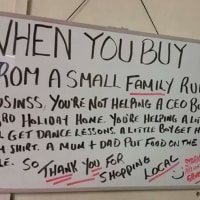 WHEN YOU BUY
FROM A SMALL FAMILY RUN
BUSINSS, YOU'RE NOT HELPING A CEO BUY
3RD HOLIDAY HOME. YOU'RE HELPING A
GET DANCE LESSONS. A LITTLE BOY GET H
SHIRT. A MUM + DAD PUT FOOD ON THE
SO THANK YOU FOR
SHOPPING LOCAL